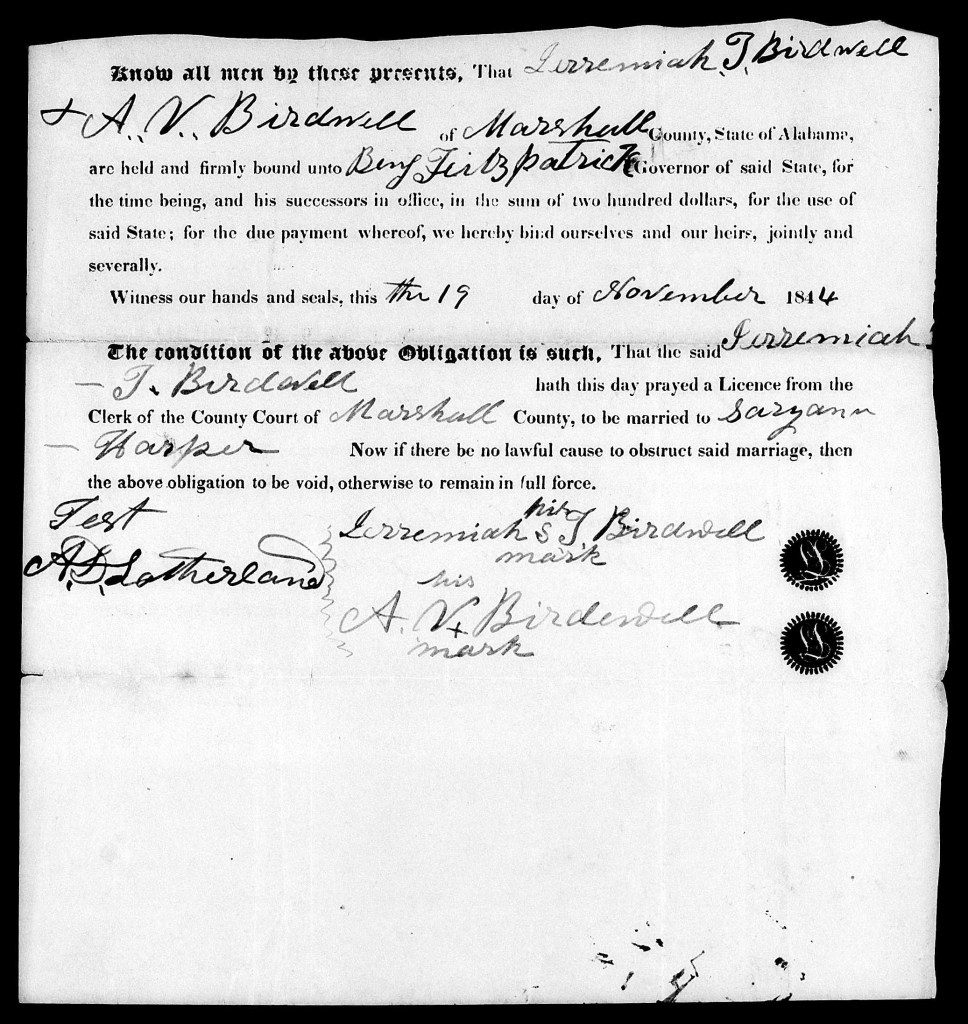 Know all men by these presents, That Jerremiah T. Birdwell
+ A. V. Birdwell of Marshall County, State of Alabama,
are held and firmly bound unto Benj Firtzpatrick Governor of said State, for
the time being, and his successors in office, in the sum of two hundred dollars, for the use of
said State; for the due payment whereof, we hereby bind ourselves and our heirs, jointly and
severally.
Witness our hands and seals, this the 19 day of November 1844
The condition of the above Obligation is such, That the said Jerremiah
— T. Birdwell hath this day prayed a Licence from the
Clerk of the County Court of Marshall County, to be married to Saryann
— Harper Now if there be no lawful cause to obstruct said marriage, then
the above obligation to be void, otherwise to remain in full force.
Test
his
Jerremiah S T. Birdwell
mark
A. D. Sotherland
his
A. V. + Birdewell
mark